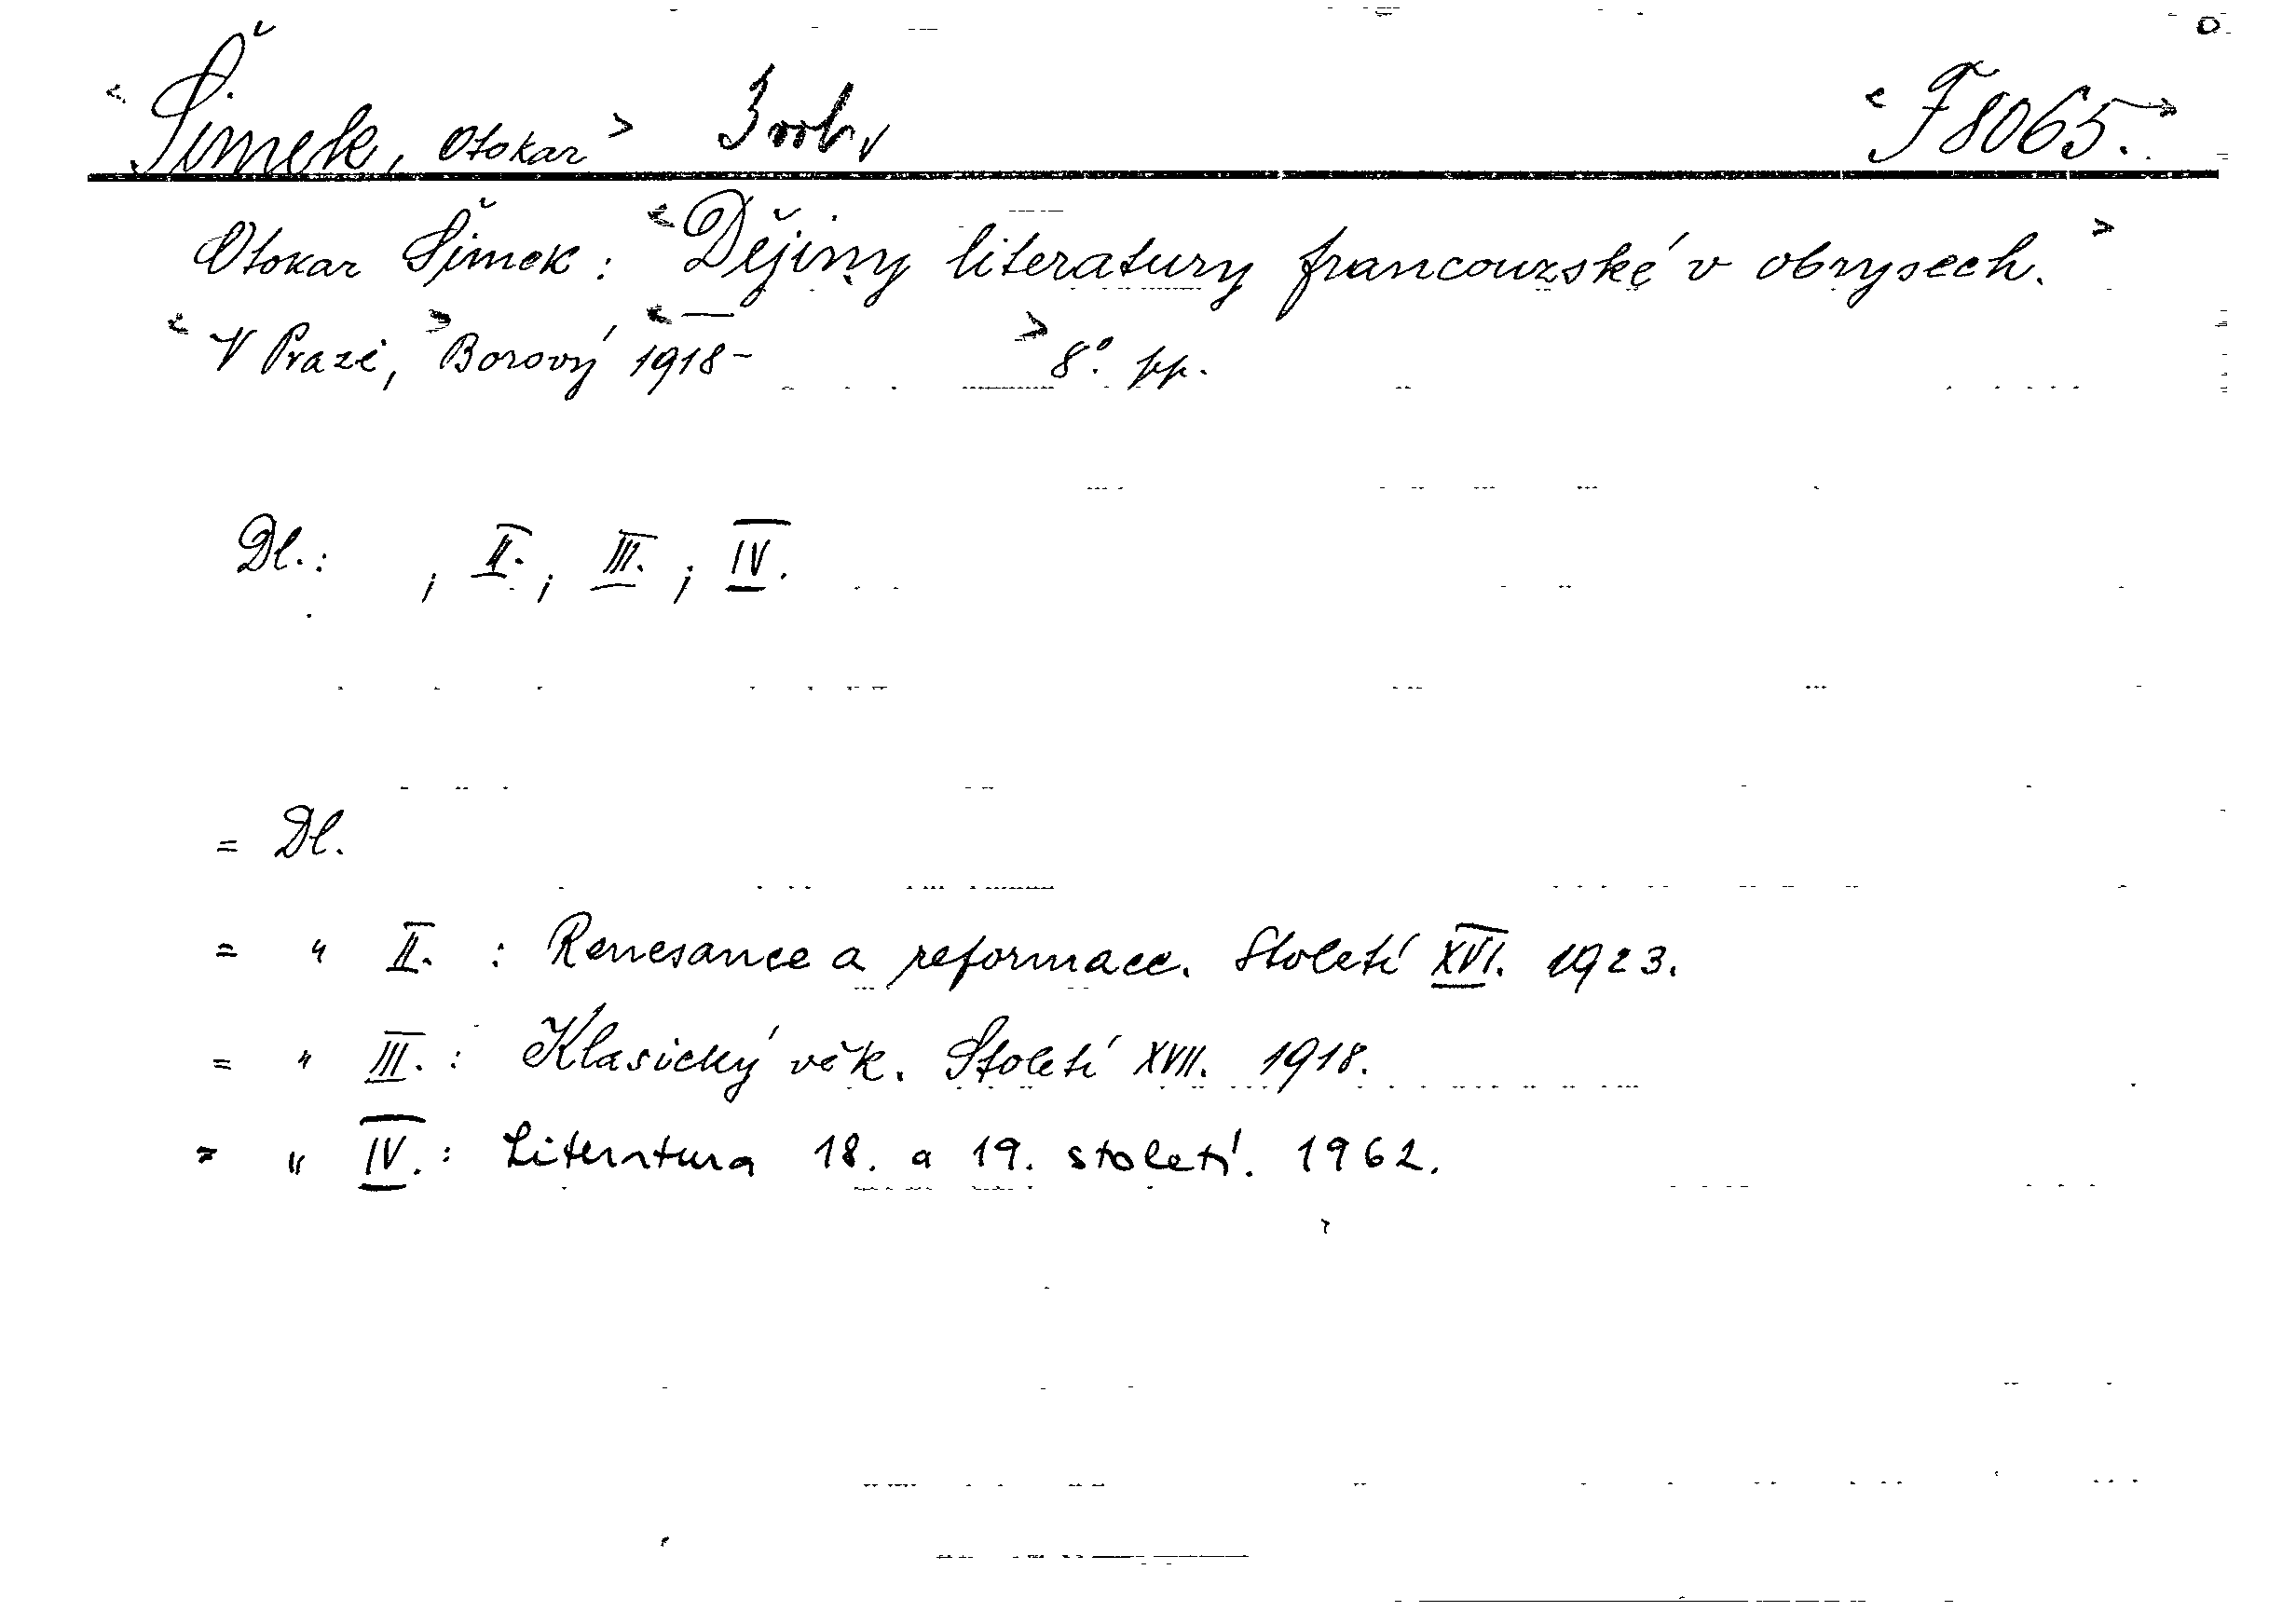 <Šimek, Otokar> 3 <F 8065.>
Otokar Šimek: <Dějiny literatury francouzské v obrysech.>
<V Praze,> Borový <1918- > 8°. pp.
Dl.: ; II.; III.; IV.
= Dl.
= " II. : Renesance a reformace. Století XVI. 1923.
= " III. : Klasický věk. Století XVII. 1918.
= " IV. : Literatura 18. a 19. století. 1962.